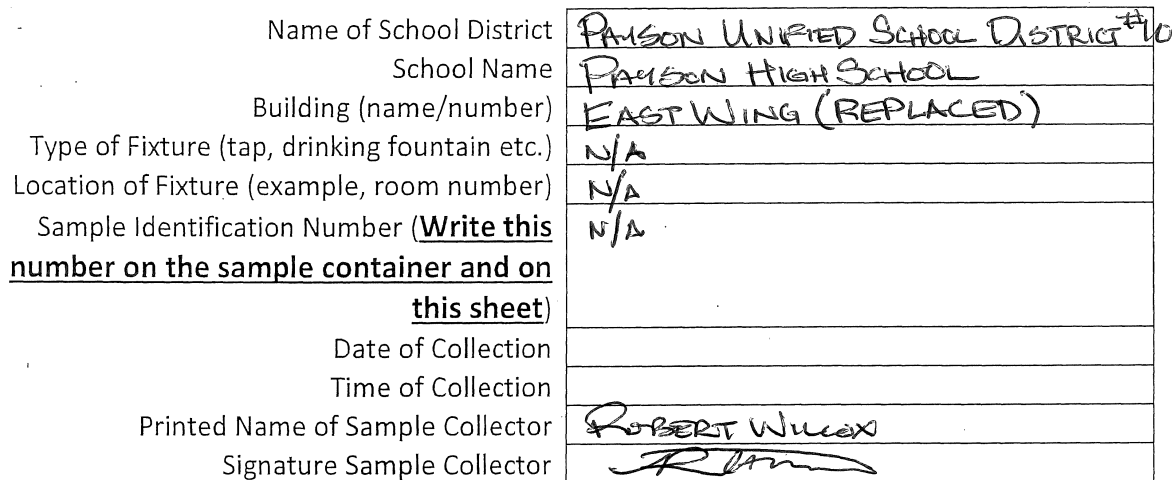 Name of School District PAYSON UNIFIED SCHOOL DISTRICT #10
School Name PAYSON HIGH SCHOOL
Building (name/number) EAST WING (REPLACED)
Type of Fixture (tap, drinking fountain etc.) N/A
Location of Fixture (example, room number) N/A
Sample Identification Number (Write this N/A
number on the sample container and on
this sheet)
Date of Collection
Time of Collection
Printed Name of Sample Collector ROBERT WILCOX
Signature Sample Collector